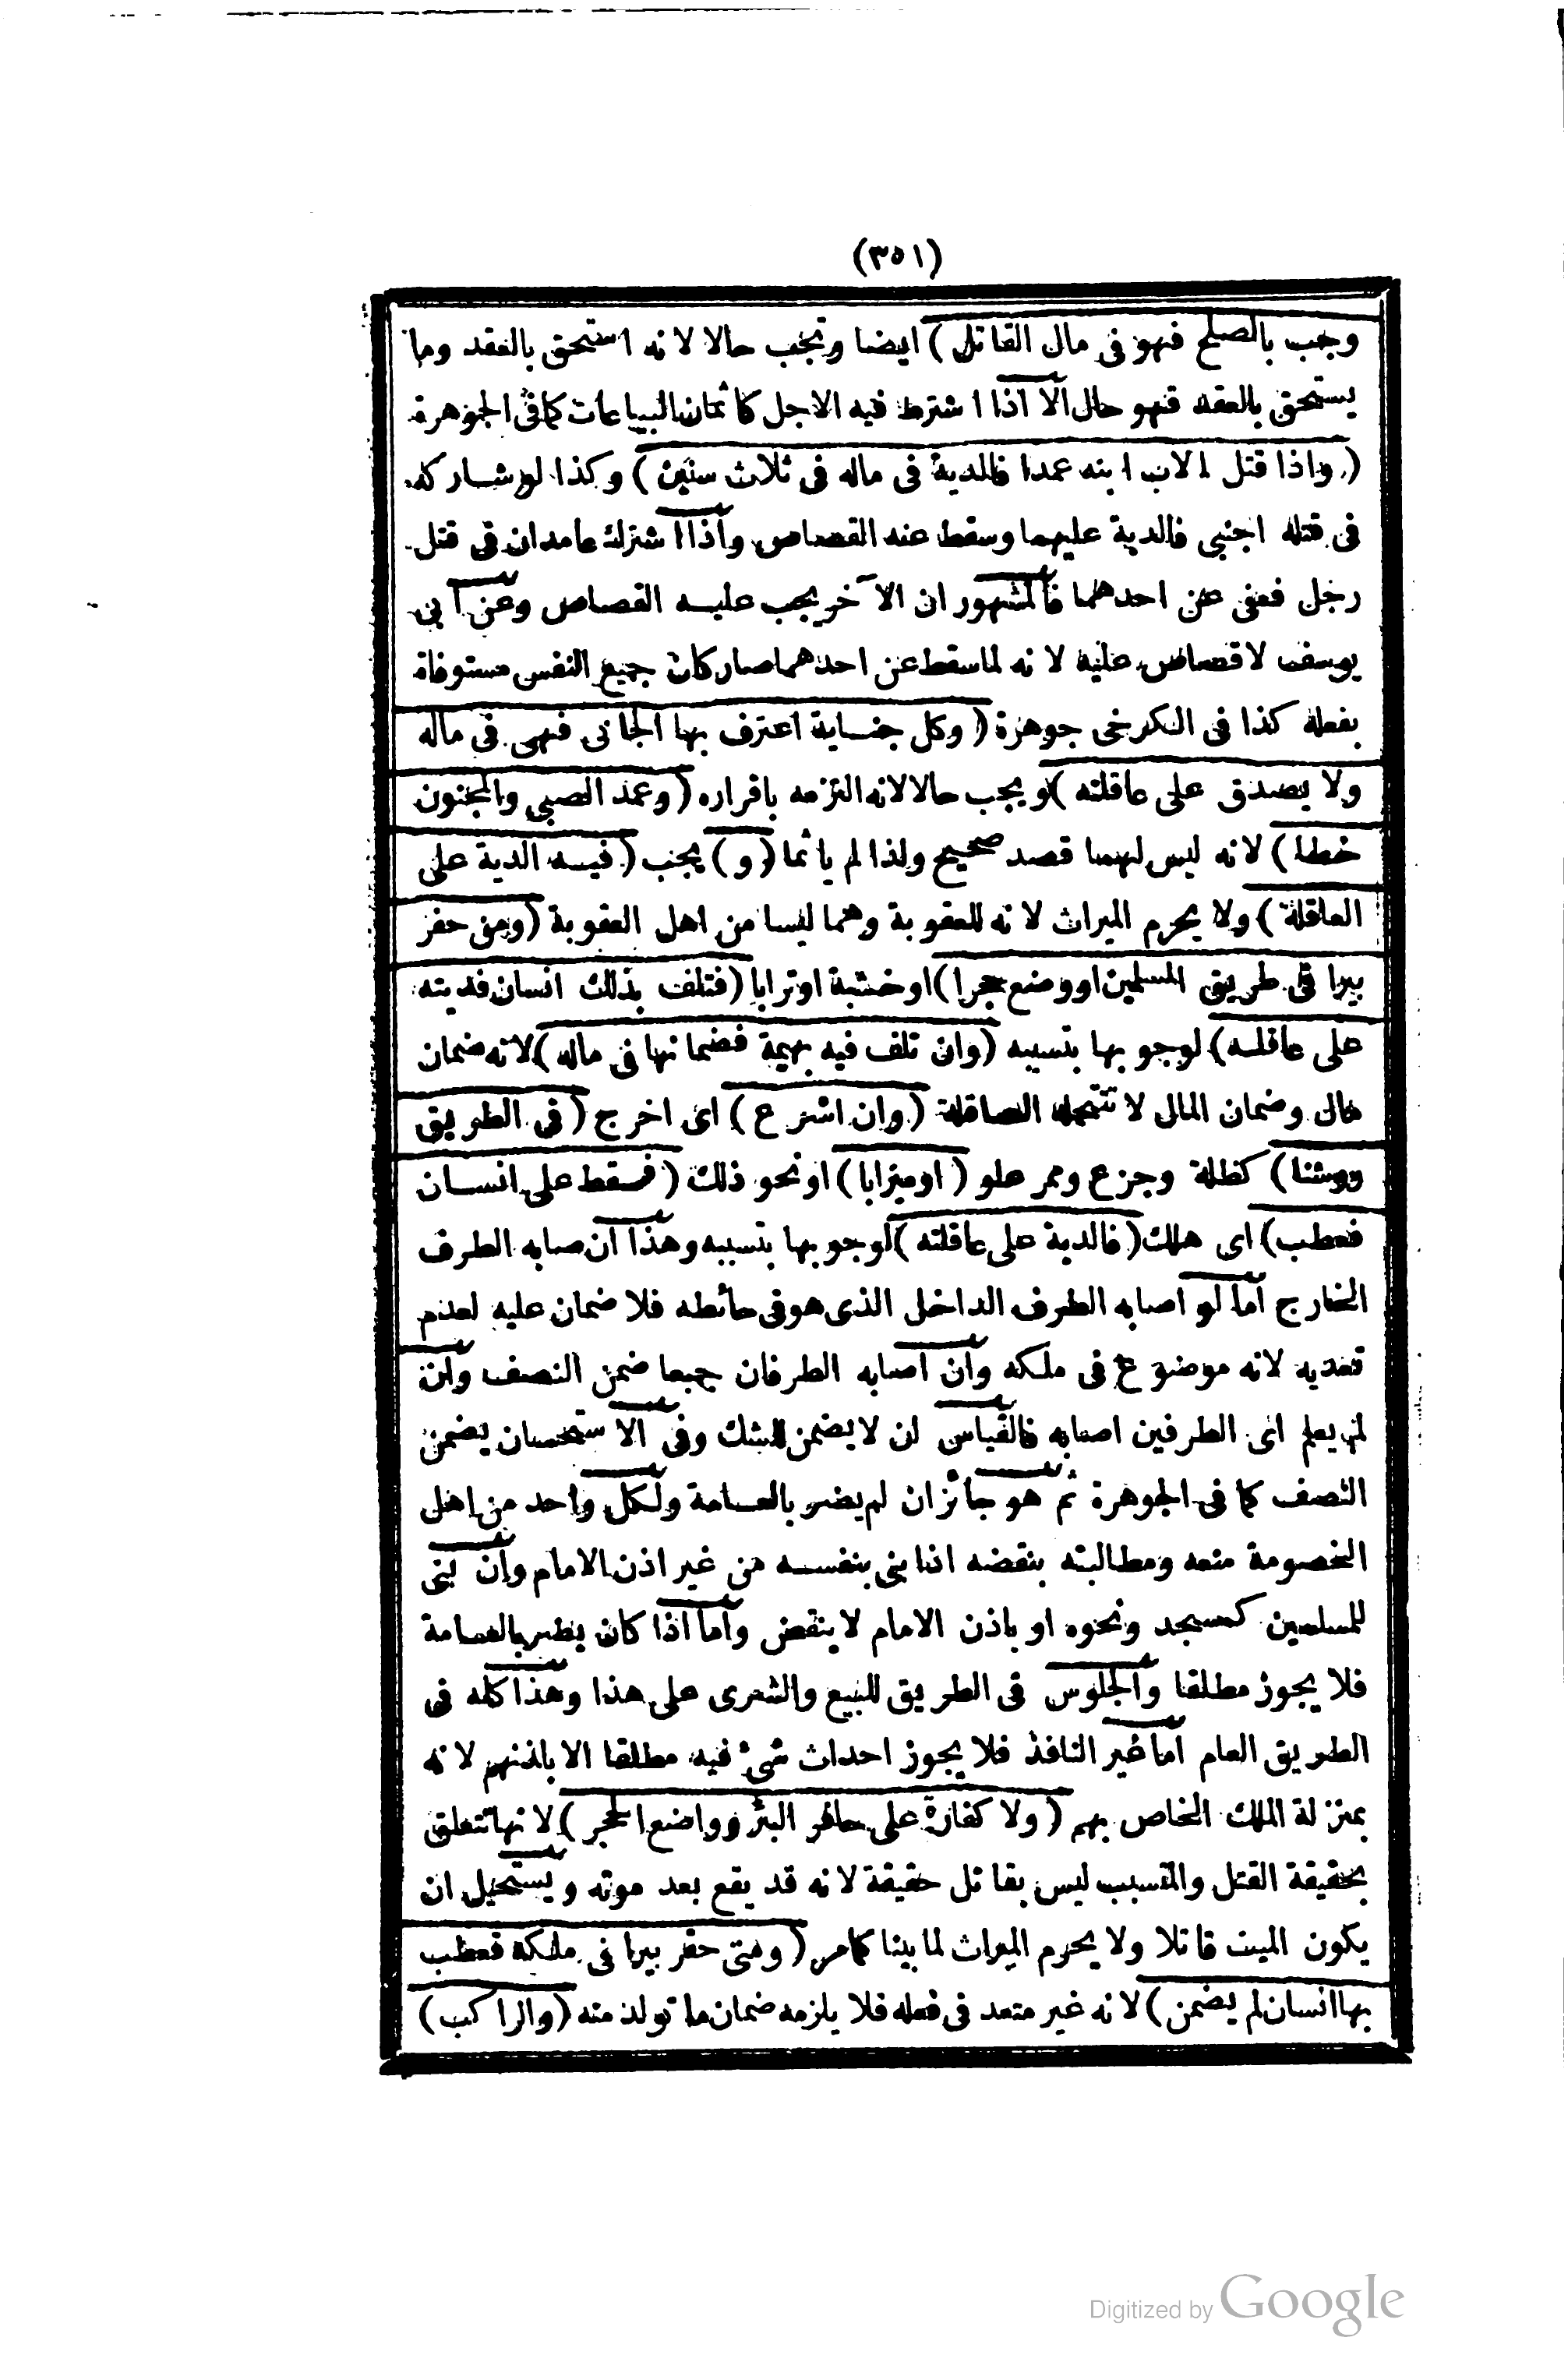 (٣٥١)
وجب بالصلح فهو فى مال القاتل) ايضا وتجب حالا لانه استحق بالعقد وما
يستحق بالعقد فهو حال الا اذا اشترط فيه الاجل كاثمان البياعات كما فى الجوهرة
(واذا قتل الاب ابنه عمدا فالدية فى ماله فى ثلاث سنين) وكذا لو شاركه
فى قتله اجنبى فالدية عليهما وسقط عنه القصاص واذا اشترك عامدان فى قتل
رجل فعفى عن احدهما فالمشهور ان الآخر يجب عليه القصاص وعن ابى
يوسف لا قصاص عليه لانه لما سقط عن احدهما صار كان جميع النفس مستوفاة
بفعله كذا فى الكرخى جوهرة (وكل جناية اعترف بها الجانى فهى فى ماله
ولا يصدق على عاقلته) ويجب حالا لانه التزمه باقراره (وعمد الصبى والمجنون
خطا) لانه ليس لهما قصد صحيح ولذا لم ياثما (و) يجب (فيه الدية على
العاقلة) ولا يحرم الميراث لانه للعقوبة وهما ليسا من اهل العقوبة (ومن حفر
بيرا فى طريق المسلمين او وضع حجرا) او خشبة او ترابا (فتلف بذلك انسان فديته
على عاقلته) لوجوبها بتسببه (وان تلف فيه بهيمة فضمانها فى ماله) لانه ضمان
مال وضمان المال لا تتحمله العاقلة (وان اشرع) اى اخرج (فى الطريق
روشنا) كظلة وجزع وممر علو (او ميزابا) او نحو ذلك (فسقط على انسان
فعطب) اى هلك (فالدية على عاقلته) لوجوبها بتسببه وهذا ان صابه الطرف
الخارج اما لو اصابه الطرف الداخل الذى هو فى حائطه فلا ضمان عليه لعدم
تعديه لانه موضوع فى ملكه وان اصابه الطرفان جميعا ضمن النصف وان
لم يعلم اى الطرفين اصابه فالقياس ان لا يضمن للشك وفى الاستحسان يضمن
النصف كما فى الجوهرة ثم هو جائز ان لم يضر بالعامة ولكل واحد من اهل
الخصومة منعه ومطالبته بنقضه اذا بنى بنفسه من غير اذن الامام وان بنى
للمسلمين كمسجد ونحوه او باذن الامام لا ينقض واما اذا كان يضر بالعامة
فلا يجوز مطلقا والجلوس فى الطريق للبيع والشرى على هذا وهذا كله فى
الطريق العام اما غير النافذ فلا يجوز احداث شئ فيه مطلقا الا باذنهم لانه
بمنزلة الملك الخاص بهم (ولا كفارة على حافر البئر وواضع الحجر) لانها تتعلق
بحقيقة القتل والمتسبب ليس بقاتل حقيقة لانه قد يقع بعد موته ويستحيل ان
يكون الميت قاتلا ولا يحرم الميراث لما بينا كما مر (ومتى حفر بيرا فى ملكه فعطب
بها انسان لم يضمن) لانه غير متعد فى فعله فلا يلزمه ضمان ما تولد منه (والراكب)
Digitized by Google